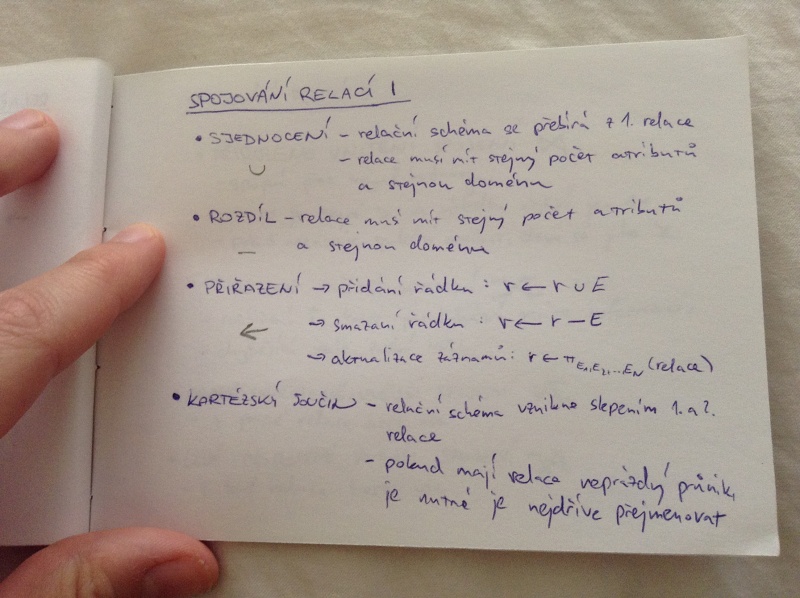 SPOJOVÁNÍ RELACÍ I
• SJEDNOCENÍ – relační schéma se přebírá z 1. relace
– relace musí mít stejný počet atributů
∪
a stejnou doménu
• ROZDÍL – relace musí mít stejný počet atributů
– a stejnou doménu
• PŘIŘAZENÍ → přidání řádku : r ← r ∪ E
← → smazaní řádku : r ← r – E
→ aktualizace záznamů : r ← π E1,E2,...EN (relace)
• KARTÉZSKÝ SOUČIN – relační schéma vznikne slepením 1. a 2.
relace
– pokud mají relace neprázdný průnik,
je nutné je nejdříve přejmenovat